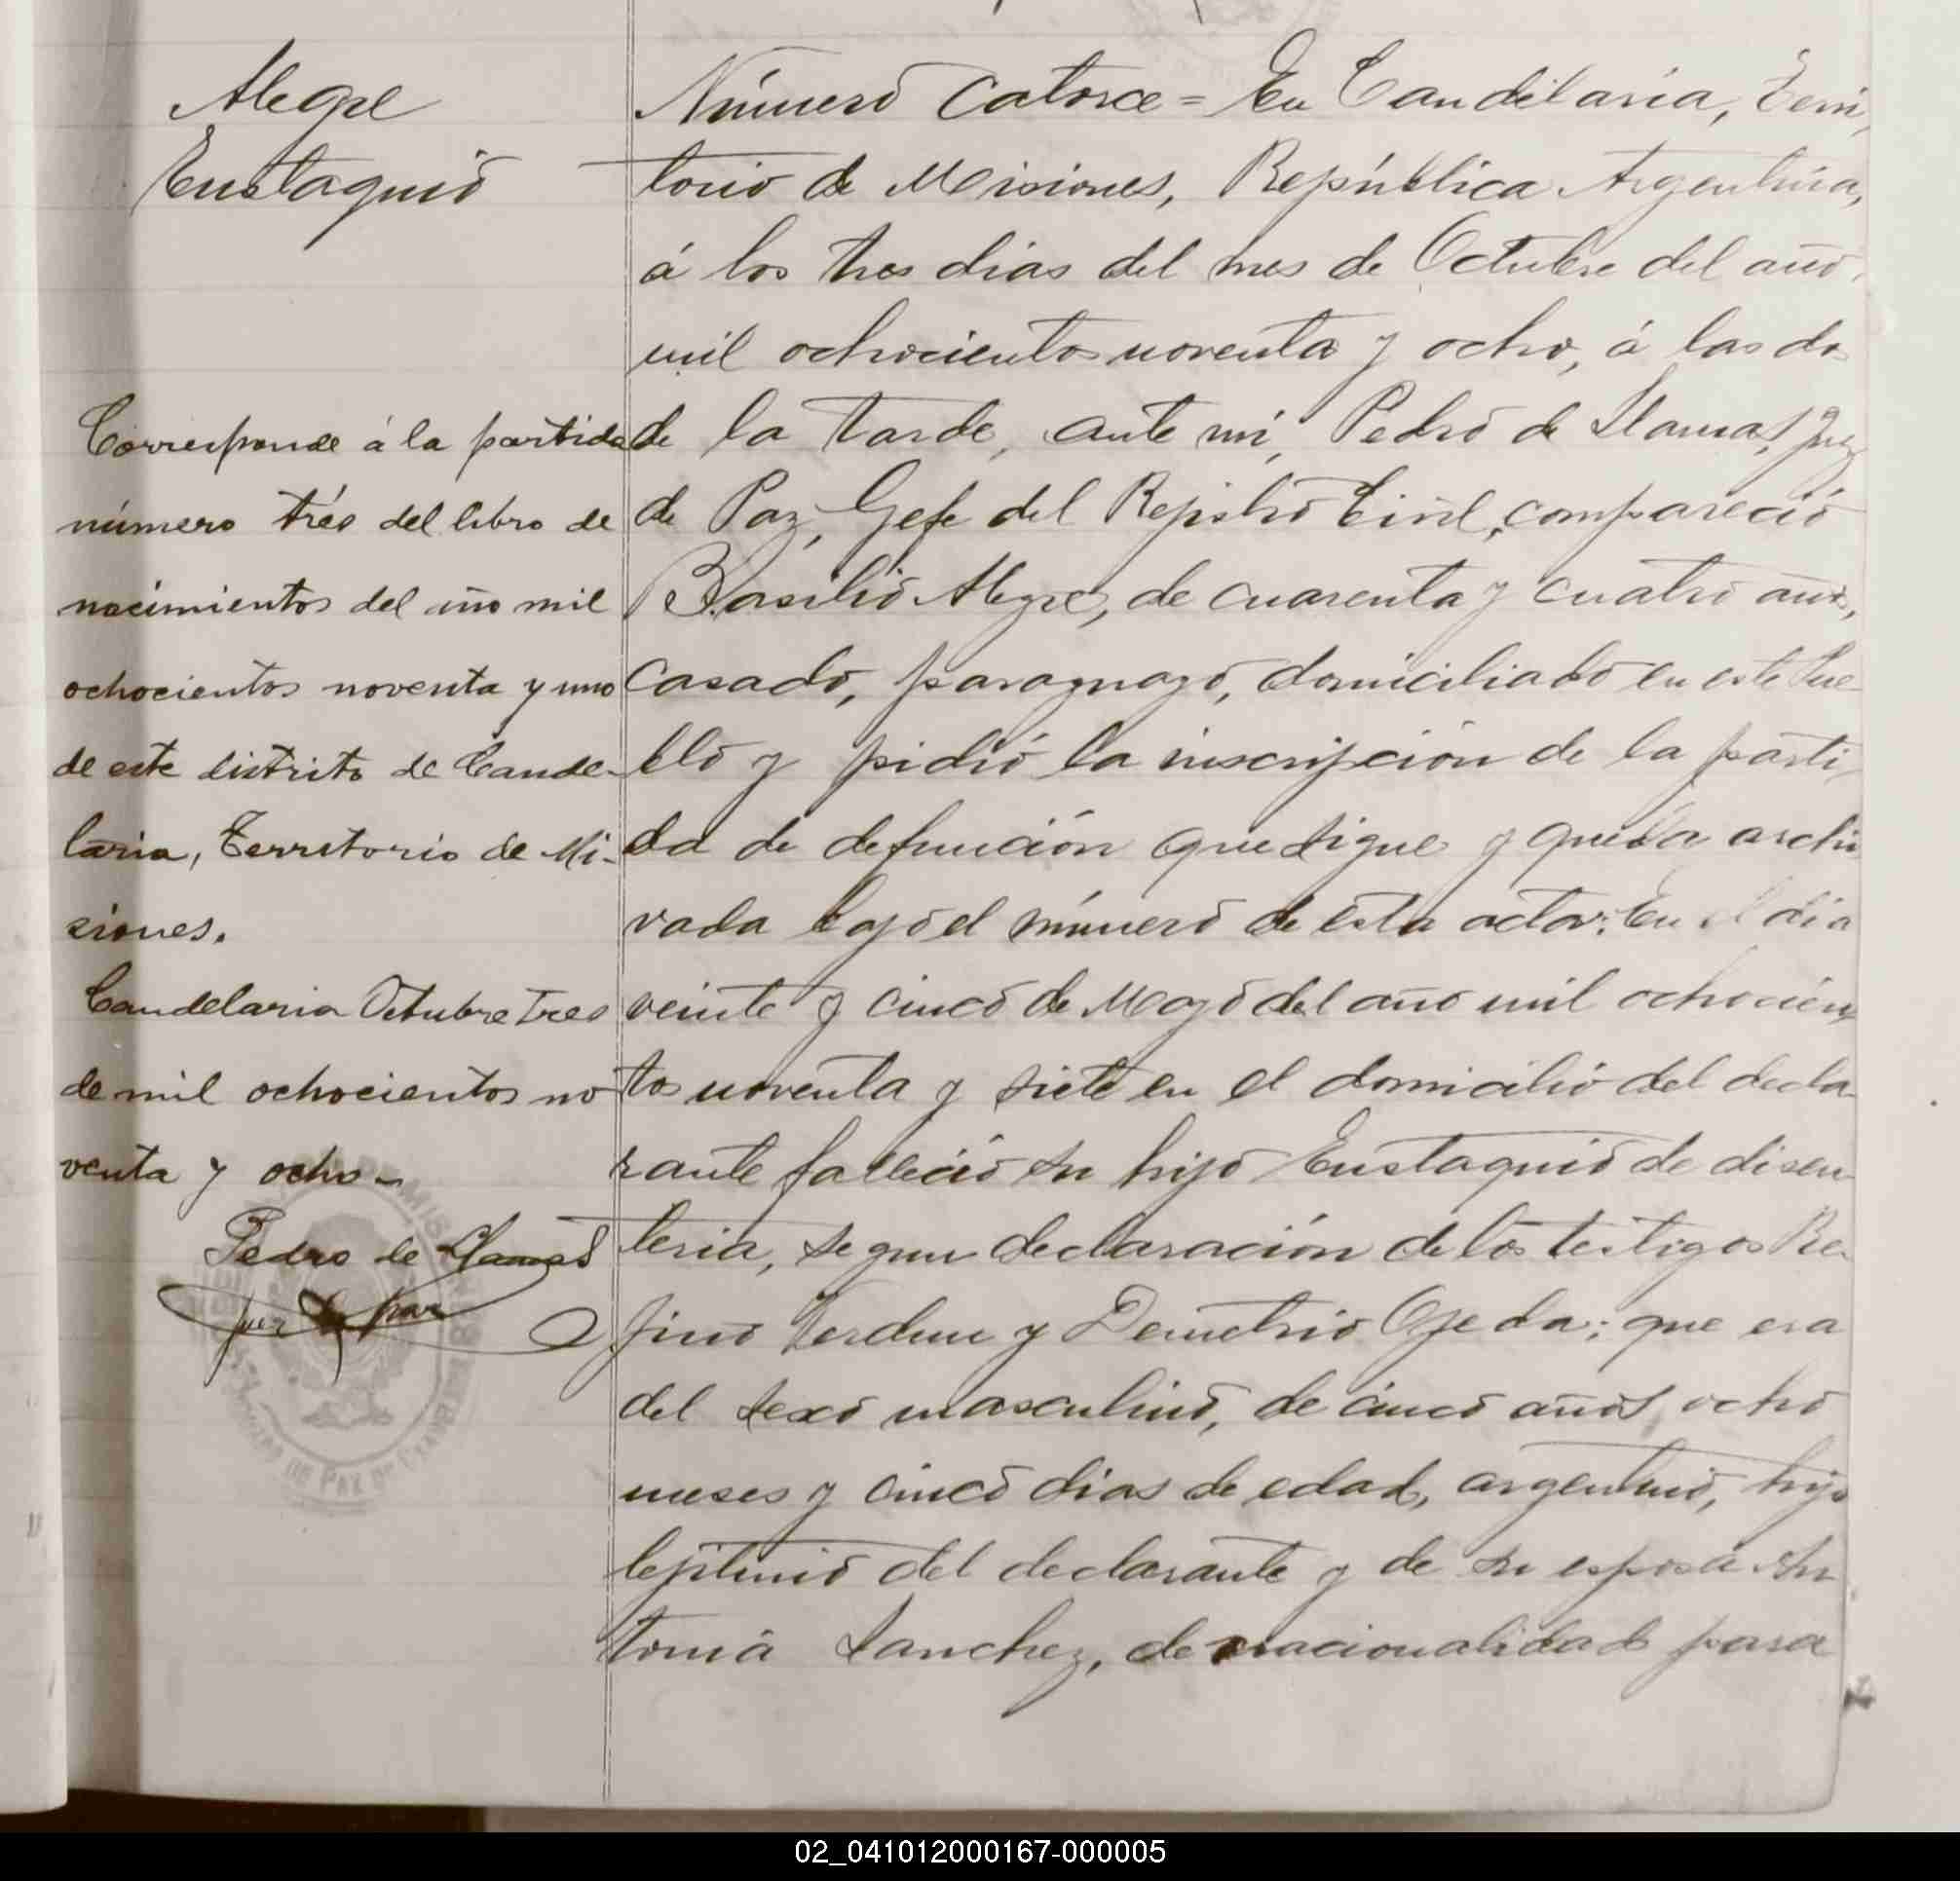 Alegre
Eustaquio
Corresponde á la partida
número trés del libro de
nacimientos del año mil
ochocientos noventa y uno
de este distrito de Cande-
laria, Territorio de Mi-
siones.
Candelaria Octubre tres
de mil ochocientos no
venta y ocho -
Pedro de Llamas
juez de paz
Número Catorce = En Candelaria, Terri,
torio de Misiones, República Argentina,
á los tres dias del mes de Octubre del año
mil ochocientos noventa y ocho, á las dos
de la tarde, ante mí, Pedro de Llamas, Juez
de Paz, Gefe del Rejistro Civil, compareció
Basilio Alegre, de cuarenta y cuatro años,
casado, paraguayo, domiciliado en este Pue-
blo y pidió la inscripción de la parti-
da de defunción que sigue y queda archi
vada bajo el número de esta acta: En el dia
veinte y cinco de Mayo del año mil ochocien
tos noventa y siete en el domicilio del decla-
rante falleció su hijo Eustaquio de disen
teria, segun declaración de los testigos Re-
fino Verdun y Demetrio Ojeda; que era
del sexo masculino, de cinco años ocho
meses y cinco dias de edad, argentino, hijo
lejitimo del declarante y de su esposa An
tonia Sanchez, de nacionalidad para
02_041012000167-000005